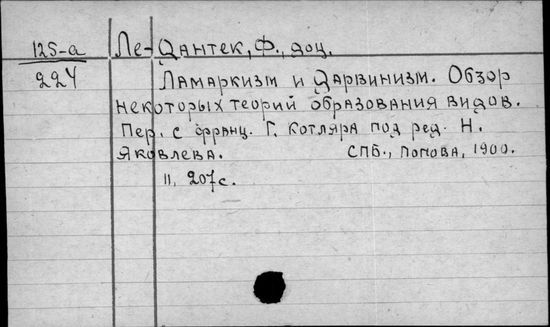 125-а Ле-Дантек, Ф., доц.
224 Ламаркизм и дарвинизм. Обзор
некоторых теорий образования видов.
Пер. с франц. Г. Котляра под ред. Н.
Яковлева. СПб., Попова, 1900.
II, 207 с.